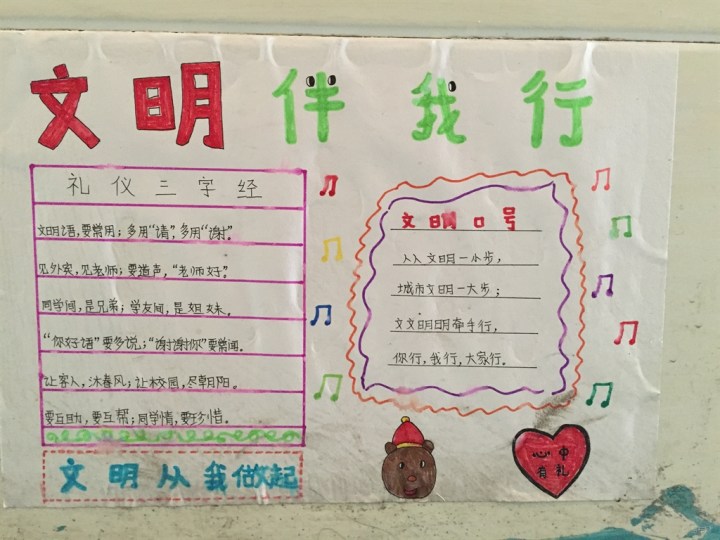 文明伴我行
礼仪三字经
文明语,要常用;多用“请”,多用“谢”。
见外宾,见老师;要道声,“老师好”。
同学间,是兄弟;学友间,是姐妹。
“你好语”要多说;“谢谢你”要常闻。
让客人,沐春风;让校园,尽朝阳。
要互助,要互帮;同学情,要珍惜。
文明从我做起
文明口号
人人文明一小步,
城市文明一大步;
文文明明牵手行,
你行,我行,大家行。
心中
有礼